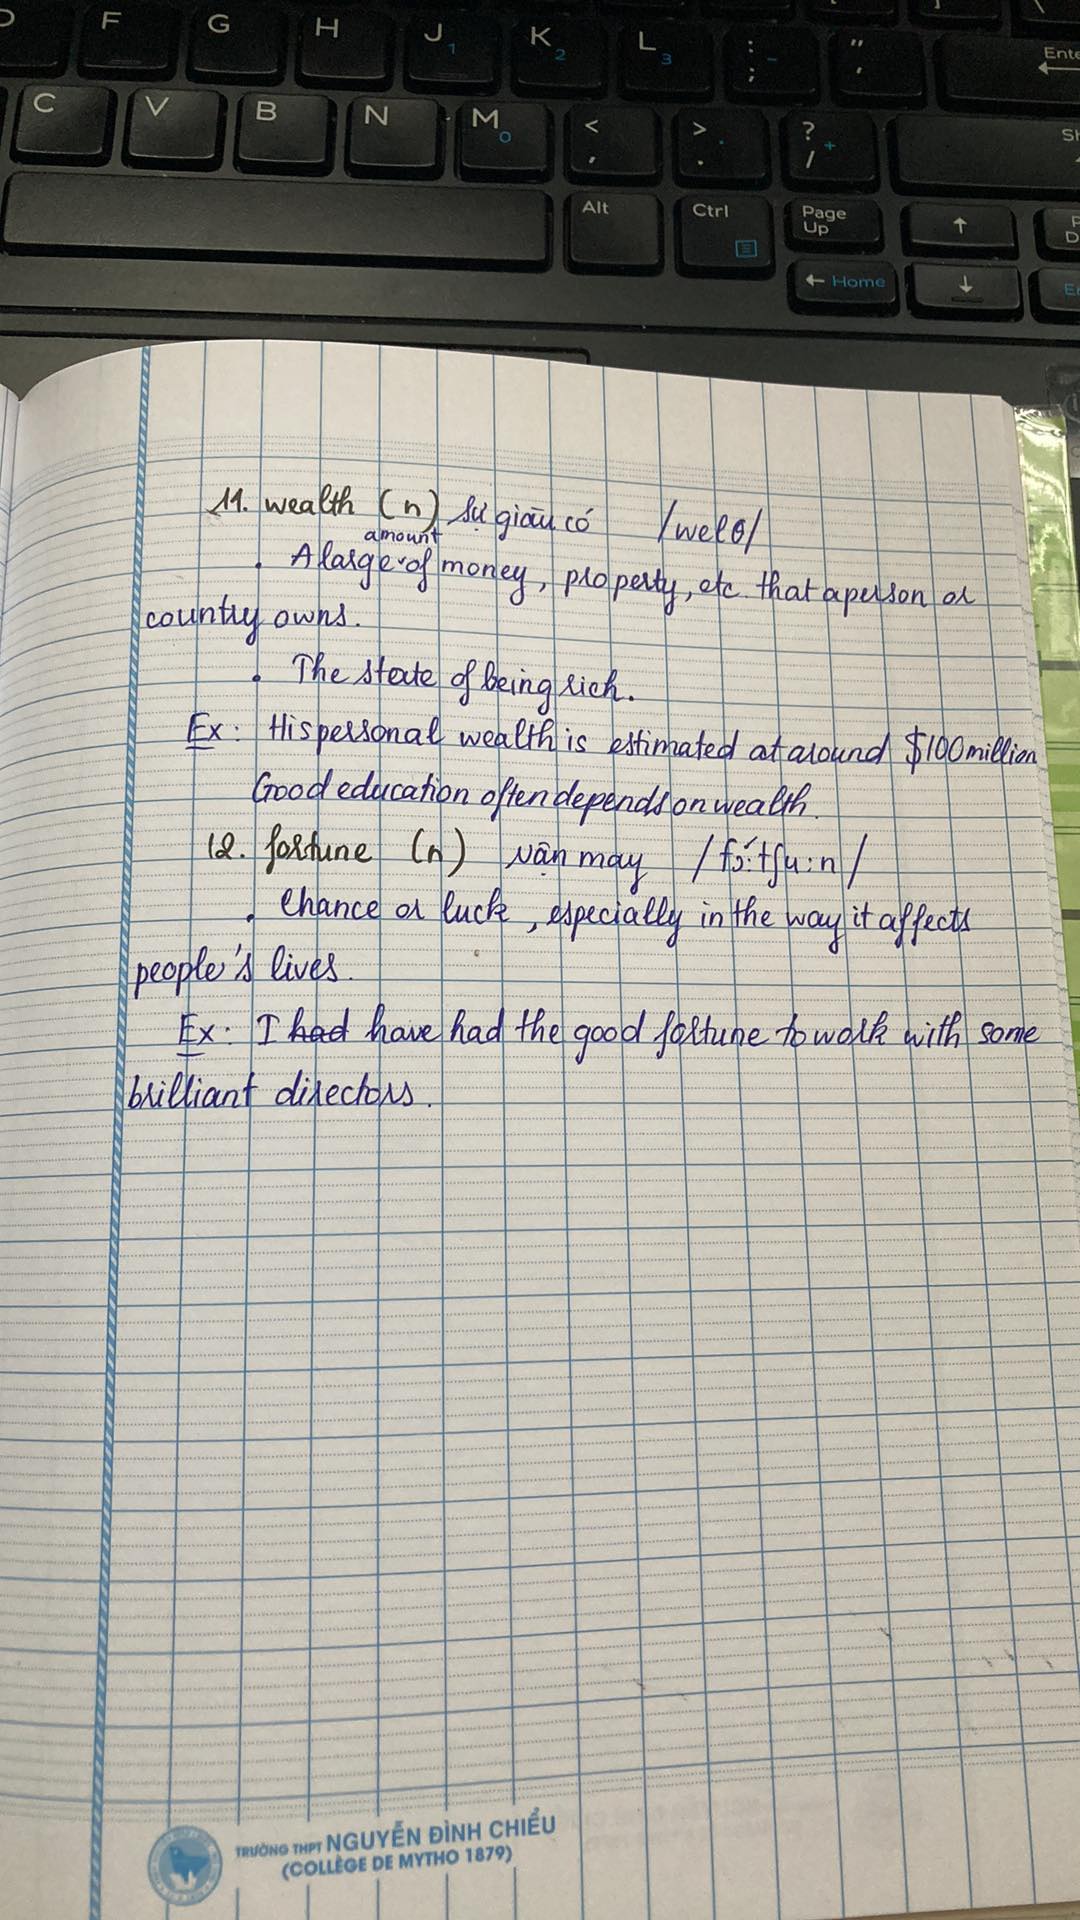 D F G H J 1 K 2 L 3 : ; - " ' Ente
C V B N M 0 < , > . . ? / + Sh
Alt Ctrl Page Up ↑ P D
← Home ↓ En
11. wealth (n) sự giàu có /welθ/
amount
. A large of money, property, etc. that a person or
country owns.
. The state of being rich.
Ex: His personal wealth is estimated at around $100 million
Good education often depends on wealth.
12. fortune (n) vận may /fɔ́:tʃu:n/
. Chance or luck, especially in the way it affects
people's lives.
Ex: I had have had the good fortune to work with some
brilliant directors.
TRƯỜNG THPT NGUYỄN ĐÌNH CHIỂU
(COLLÈGE DE MYTHO 1879)